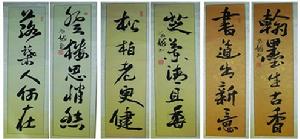 翰墨生古香
書道出新意
芝蘭清且香
松柏老更健
登樓思悄然
人何在